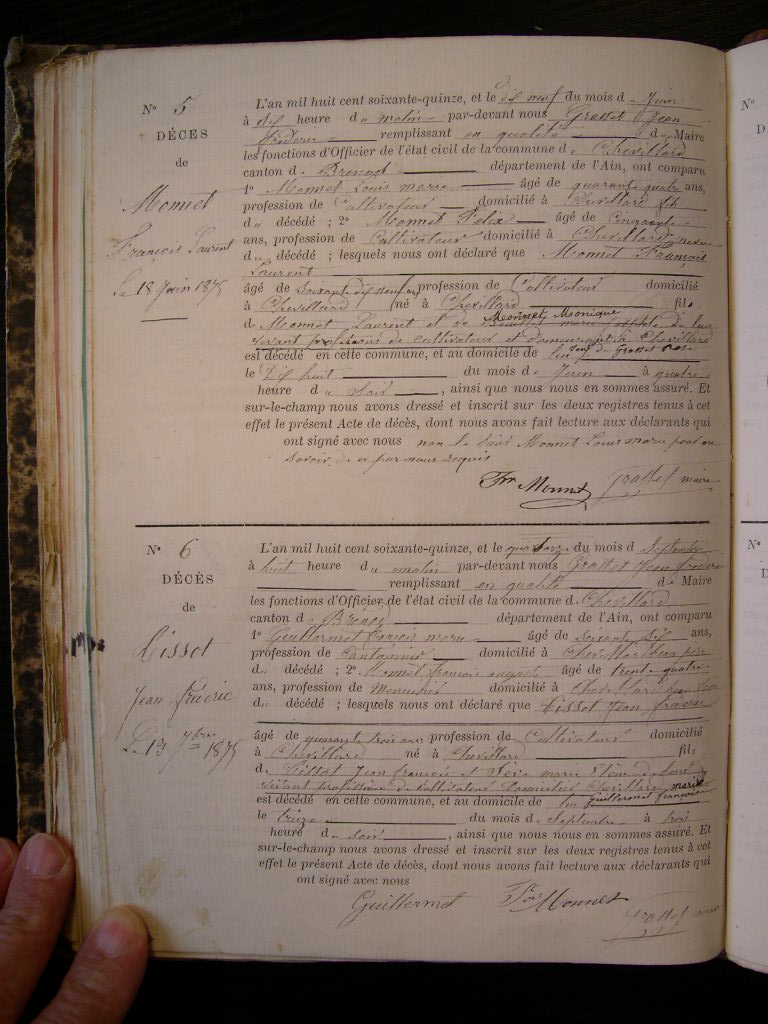 N° 5
DÉCES
de
Monnet
François Laurent
Le 18 Juin 1875
L'an mil huit cent soixante-quinze, et le dix neuf du mois de Juin
à dix heure du matin par-devant nous Grosset Jean
remplissant en qualité de Maire
les fonctions d'Officier de l'état civil de la commune de Chevillard
canton de Brenod département de l'Ain, ont comparu
1° Monnet Louis marie âgé de quarante quatre ans,
profession de Cultivateur domicilié à Chevillard fils
du décédé ; 2° Monnet Felix âgé de Cinquante
ans, profession de Cultivateur domicilié à Chevillard neveu
du décédé ; lesquels nous ont déclaré que Monnet François
Laurent
âgé de Soixante dix neuf ans profession de Cultivateur domicilié
à Chevillard né à Chevillard fils
de Monnet Laurent et de Monnet Monique
vivant professions de cultivateurs et demeurant à Chevillard
est décédé en cette commune, et au domicile de
le Dix huit du mois de Juin à quatre
heure du Soir, ainsi que nous nous en sommes assuré. Et
sur-le-champ nous avons dressé et inscrit sur les deux registres tenus à cet
effet le présent Acte de décès, dont nous avons fait lecture aux déclarants qui
ont signé avec nous non le sieur Monnet Louis marie pour ne
savoir, de ce par nous requis
Fx Monnet Grosset maire
N° 6
DÉCÈS
de
Cissot
Jean fréderic
Le 13 7bre 1875
L'an mil huit cent soixante-quinze, et le quatorze du mois de Septembre
à huit heure du matin par-devant nous Grosset Jean fréderic
remplissant en qualité de Maire
les fonctions d'Officier de l'état civil de la commune de Chevillard
canton de Brenod département de l'Ain, ont comparu
1° Guillermet françois marie âgé de Soixante Six ans,
profession de Cantonnier domicilié à Chevillard beau père
du décédé ; 2° Monnet françois auguste âgé de trente quatre
ans, profession de Menuisier domicilié à Chevillard beau frère
du décédé ; lesquels nous ont déclaré que Cissot Jean fréderic
âgé de quarante trois ans profession de Cultivateur domicilié
à Chevillard né à Chevillard fils
de Cissot Jean françois et
vivant profession de Cultivateur Domiciliés Chevillard marié
est décédé en cette commune, et au domicile de Guillermet françois
le treize du mois de Septembre à trois
heure du soir, ainsi que nous nous en sommes assuré. Et
sur-le-champ nous avons dressé et inscrit sur les deux registres tenus à cet
effet le présent Acte de décès, dont nous avons fait lecture aux déclarants qui
ont signé avec nous
Guillermet Fçois Monnet
Grosset maire
N°
N°
D